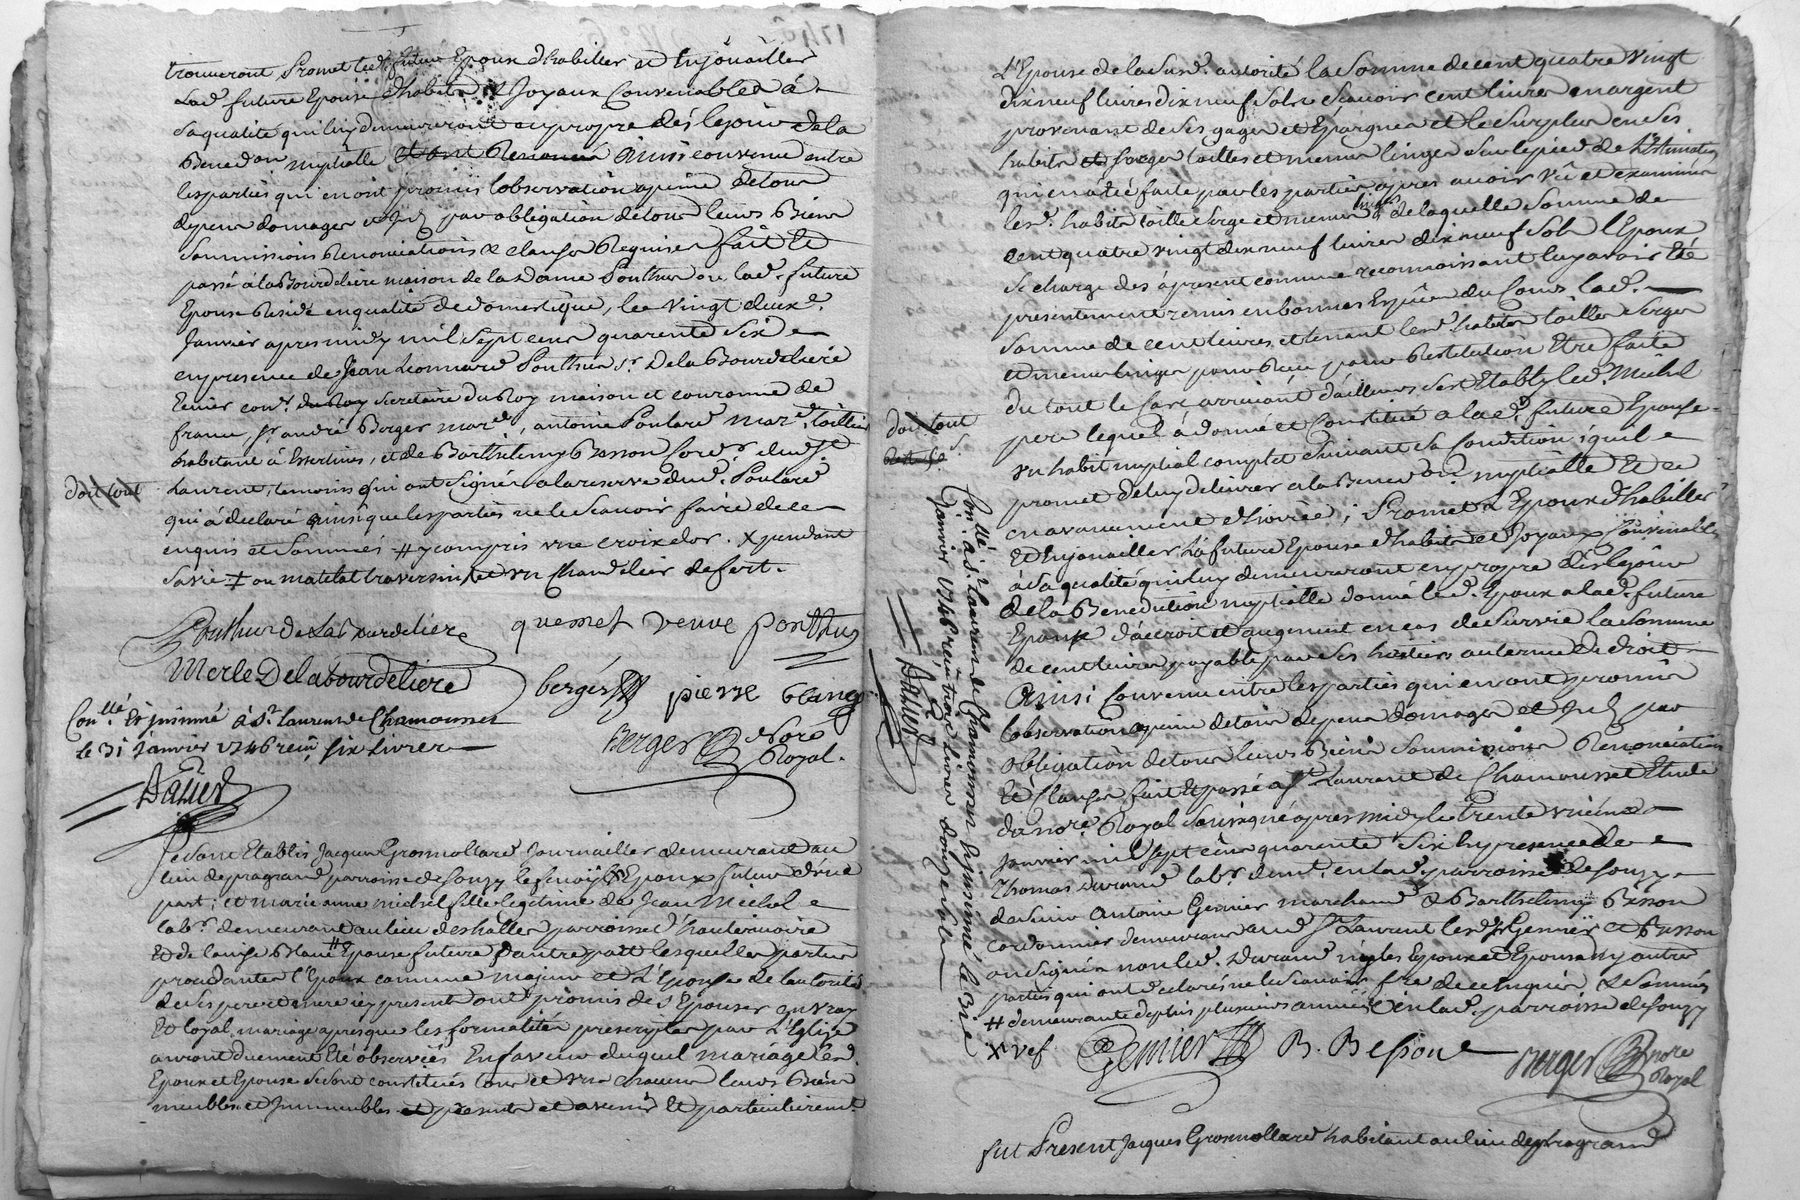 trouveront, Promet led. futur Epoux d'habiller et Enjoüailler
Lad. future Epouse d'habits et Joyaux Convenables à
sa qualité qui luy demeureront en propre dés lejour dela
Bened.on nuptialle Ainsi convenu entre
les parties qui en ont promis l'observation a peine de tous
depens domages et par obligation de tous leurs Biens
soumissions Renonciations & clauses Requises fait et
passé à la Bourdeliere maison de la Dame Ponthus ou lad. future
Epouse Reside en qualité de domestique, le Vingt deux.e
Janvier apres midy mil sept cens quarente Six
en presence de Jean Leonnard Ponthus s.r De la Bourdeliere
Ecuier con.er secretaire du Roy maison et couronne de
france, s.r andré Berger mar.d, antoine Poulard mar.d tailleur
habitant à Essertines, et de Barthelemy Besson cord.r dud. St
Laurent, temoins qui ont signés a la reserve dud. Poulard
qui à declaré ainsi que les parties ne le scavoir faire de ce
enquis et sommés # y compris une croix d'or. X pendant
sa vie ‡ ou matelat traversin, et un Chandelier de fert.
doit tout
Ponthus de La Bourdeliere
quesnet veuve ponthus
Merle De labourdeliere
bergér
pierre blanc
Con.llé Et jnsinué à St. Laurent de Chamousset
le 31 Janvier 1746 reçû six livres
Berger Nore Royal.
Dauest
Se sont Etablis Jacques Grosmollard Journallier demeurant au
lieu de pragrand parroisse de souzy X Epoux futur d'une
part; et marie anne michel fille legitime de Jean Michel
lab.r demeurant au lieu des halles parroisse d'hauterivoire
Et de louise Blanc # Epouse future d'autre part lesquelles parties
procedantes l'Epoux comme majeur et L'Epouse de l'autorité
de ses pere et mere icy presents ont promis de s'Epouser en vray
Et loyal mariage apres que les formalités prescriptes par L'Eglise
auront duement Eté observées En faveur duquel mariage lesd.
Epoux et Epouse se sont constitués tous et un chacun leurs Biens
meubles et Immeubles presents et avenir Et particulierem.t
L'Epouse de la sus.d. autorité la somme de cent quatre vingt
dix neuf livres dix neuf sols scavoir cent livres en argent
provenant de ses gages et Epargnes et le surplus en ses
habits serges toilles et menus linges sur le pied de L'Estimation
qui en à été faite par les parties apres avoir vû et examinés
lesd. habits toille serge et menus linges de laquelle somme de
cent quatre vingt dix neuf livres dix neuf sols l'Epoux
se charge dés à present comme reconnoissant luy avoir Eté
presentement remis en bonnes Espèces du Cours lad.
somme de cent livres, et tenant lesd. habits toilles serges
et menus linges pour Reçu pour Restitution Etre faite
du tout le Cas arrivant d'ailleurs s'est Etably led. Michel
pere lequel à donné et constitué a lad. future Epouse
un habit nuptial complet suivant sa Condition, qu'il
promet de luy delivrer a la Bened.on nuptialle Et ce
en avancement d'hoirie; Promet L'Epoux d'habiller
Et Enjouailler La future Epouse d'habits et Joyaux Convenables
à sa qualité qui luy demeureront en propre dés le jour
de la Benediction nuptialle donne led. Epoux a lad. future
Epouse d'accroit et augment en cas de survie la somme
de cent livres payable par ses heritiers au terme de droit
Ainsi Convenu entre les parties qui en ont promis
l'observation a peine de tous depens domages et par
obligation de tous leurs Biens soumissions Renonciations
Et Clauses fait Et passé a St Laurent de Chamousset Etude
du nore. Royal soussigné apres midy le trente unieme
Janvier mil sept cens quarente Six En presence de
Thomas durand lab.r dem.t en lad. parroisse de souzy
de sieur Antoine Gemier marchand & Barthelemy Besson
cordonnier demeurant aud. St Laurent lesd. Srs Gemier et Besson
ont signés non led. durand ny les Epoux et Epouse ny autres
parties qui ont declarés ne le scavoir f.re de ce enquis & sommés
# demeurante depuis plusieurs années en lad. parroisse de souzy
X vef
doit tout
Con.llé à St. Laurent de Chamousset Et jnsinué le 31e
Janvier 1746 reçû trois Livres douze sols
Dauest
Gemier
B. Besson
Berger Nore Royal
fut Present Jacques Grosmollard habitant au lieu de pragrand